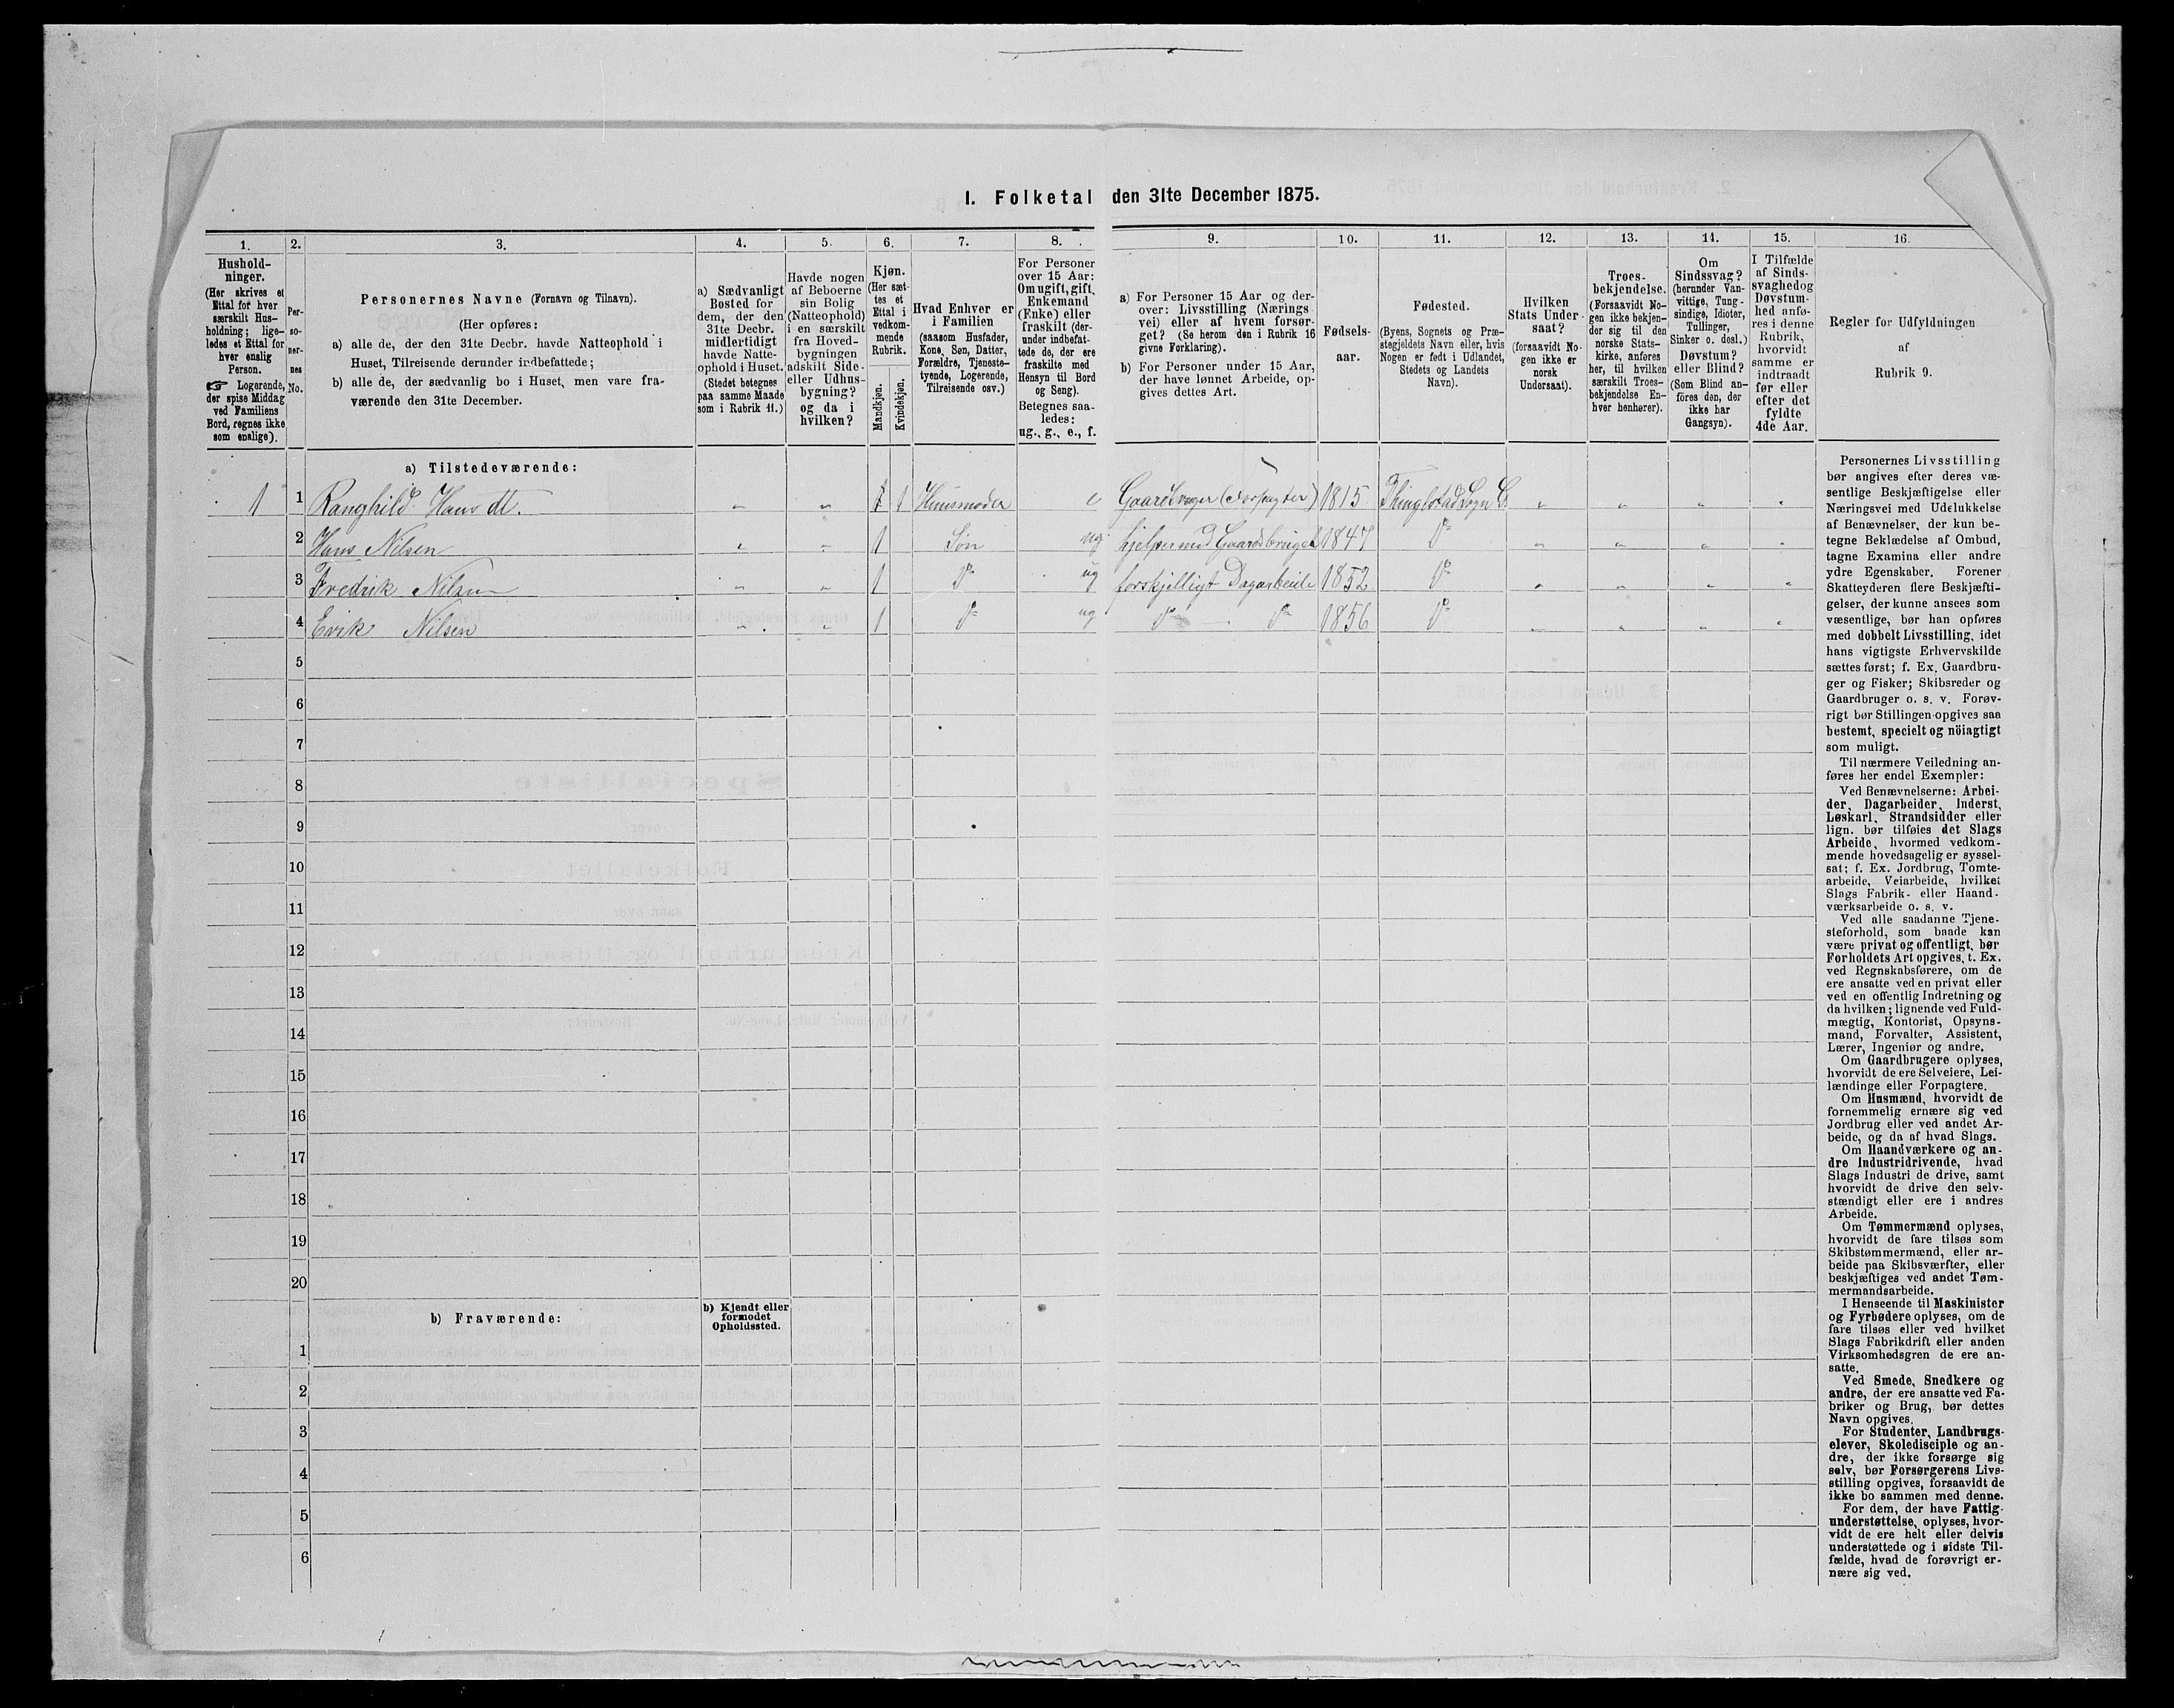 I. Folketal den 31te December 1875.
1. 2. 3. 4. 5. 6. 7. 8. 9. 10. 11. 12. 13. 14. 15. 16.
Hushold-
ninger.
(Her skrives et
Ettal for hver
særskilt Hus-
holdning; lige-
ledes et Ettal for
hver enslig
Person.
☞ Logerende,
der spise Middag
ved Familiens
Bord, regnes ikke
som enslige).
Per-
so-
ner-
nes
No.
Personernes Navne (Fornavn og Tilnavn).
(Her opføres:
a) alle de, der den 31te Decbr. havde Natteophold i
Huset, Tilreisende derunder indbefattede;
b) alle de, der sædvanlig bo i Huset, men vare fra-
værende den 31te December.
a) Sædvanligt
Bosted for
dem, der den
31te Decbr.
midlertidigt
havde Natte-
ophold i Huset.
(Stedet betegnes
paa samme Maade
som i Rubrik 11.)
Havde nogen
af Beboerne
sin Bolig
(Natteophold)
i en særskilt
fra Hoved-
bygningen
adskilt Side-
eller Udhus-
bygning?
og da i
hvilken?
Kjøn.
(Her sæt-
tes et
Ettal i
vedkom-
mende
Rubrik.
Mandkjøn.
Kvindekjøn.
Hvad Enhver er
i Familien
(saasom Husfader,
Kone, Søn, Datter,
Forældre, Tjeneste-
tyende, Logerende,
Tilreisende osv.)
For Personer
over 15 Aar:
Om ugift, gift,
Enkemand
(Enke) eller
fraskilt (der-
under indbefat-
tede de, der ere
fraskilte med
Hensyn til Bord
og Seng).
Betegnes saa-
ledes:
ug., g., e., f.
a) For Personer 15 Aar og der-
over: Livsstilling (Nærings-
vei) eller af hvem forsør-
get? (Se herom den i Rubrik 16
givne Forklaring).
b) For Personer under 15 Aar,
der have lønnet Arbeide, op-
gives dettes Art.
Fødsels-
aar.
Fødested.
(Byens, Sognets og Præ-
stegjeldets Navn eller, hvis
Nogen er født i Udlandet,
Stedets og Landets
Navn).
Hvilken
Stats Under-
saat?
(forsaavidt No-
gen ikke er
norsk
Undersaat).
Troes-
bekjendelse.
(Forsaavidt No-
gen ikke bekjen-
der sig til den
norske Stats-
kirke, anføres
her, til hvilken
særskilt Troes-
bekjendelse En-
hver henhører).
Om
Sindssvag?
(herunder Van-
vittige, Tung-
sindige, Idioter,
Tullinger,
Sinker o. desl.)
Døvstum?
eller Blind?
(Som Blind an-
føres den, der
ikke har
Gangsyn).
I Tilfælde
af Sinds-
svaghed og
Døvstum-
hed anfø-
res i denne
Rubrik,
hvorvidt
samme er
indtraadt
før eller
efter det
fyldte
4de Aar.
Regler for Udfyldningen
af
Rubrik 9.
a) Tilstedeværende:
1 1 Ranghild Hansdt. " " 1 1 Huusmoder e Gaardbruger (Forpagter) 1815 " " " "
2 Hans Nilsen " " 1 Søn ug hjelper med 1847 Do " " " "
3 Fredrik Nilsen " " 1 Do ug forskjelligt Dagarbeide 1852 Do " " " "
4 Erik Nilsen " " 1 Do ug Do — Do 1856 Do " " " "
5
6
7
8
9
10
11
12
13
14
15
16
17
18
19
20
b) Fraværende:
b) Kjendt eller
formodet
Opholdssted.
1
2
3
4
5
6
Personernes Livsstilling
bør angives efter deres væ-
sentlige Beskjæftigelse eller
Næringsvei med Udelukkelse
af Benævnelser, der kun be-
tegne Beklædelse af Ombud,
tagne Examina eller andre
ydre Egenskaber. Forener
Skatteyderen flere Beskjæfti-
gelser, der kunne ansees som
væsentlige, bør han opføres
med dobbelt Livsstilling, idet
hans vigtigste Erhvervskilde
sættes først; f. Ex. Gaardbru-
ger og Fisker; Skibsreder og
Gaardbruger o. s. v. Forøv-
rigt bør Stillingen opgives saa
bestemt, specielt og nöiagtigt
som muligt.
Til nærmere Veiledning an-
føres her endel Exempler:
Ved Benævnelserne: Arbei-
der, Dagarbeider, Inderst,
Løskarl, Strandsidder eller
lign. bør tilføies det Slags
Arbeide, hvormed vedkom-
mende hovedsagelig er syssel-
sat; f. Ex. Jordbrug, Tomte-
arbeide, Veiarbeide, hvilket
Slags Fabrik- eller Haand-
værksarbeide o. s. v.
Ved alle saadanne Tjene-
steforhold, som baade kan
være privat og offentligt, bør
Forholdets Art opgives, t. Ex.
ved Regnskabsførere, om de
ere ansatte ved en privat eller
ved en offentlig Indretning og
da hvilken; lignende ved Fuld-
mægtig, Kontorist, Opsyns-
mand, Forvalter, Assistent,
Lærer, Ingeniør og andre.
Om Gaardbrugere oplyses,
hvorvidt de ere Selveiere, Lei-
lændinge eller Forpagtere.
Om Husmænd, hvorvidt de
fornemmelig ernære sig ved
Jordbrug eller ved andet Ar-
beide, og da af hvad Slags.
Om Haandværkere og an-
dre Industridrivende, hvad
Slags Industri de drive, samt
hvorvidt de drive den selv-
stændigt eller ere i andres
Arbeide.
Om Tømmermænd oplyses,
hvorvidt de fare tilsøs som
Skibstømmermænd, eller ar-
beide paa Skibsværfter, eller
beskjæftiges ved andet Tøm-
mermandsarbeide.
I Henseende til Maskinister
og Fyrbødere oplyses, om de
fare tilsøs eller ved hvilket
Slags Fabrikdrift eller anden
Virksomhedsgren de ere an-
satte.
Ved Smede, Snedkere og
andre, der ere ansatte ved Fa-
briker og Brug, bør dettes
Navn opgives.
For Studenter, Landbrugs-
elever, Skoledisciple og an-
dre, der ikke forsørge sig
selv, bør Forsørgerens Livs-
stilling opgives, forsaavidt de
ikke bo sammen med denne.
For dem, der have Fattig-
understøttelse, oplyses, hvor-
vidt de ere helt eller delvis
understøttede og i sidste Til-
fælde, hvad de forøvrigt er-
nære sig ved.